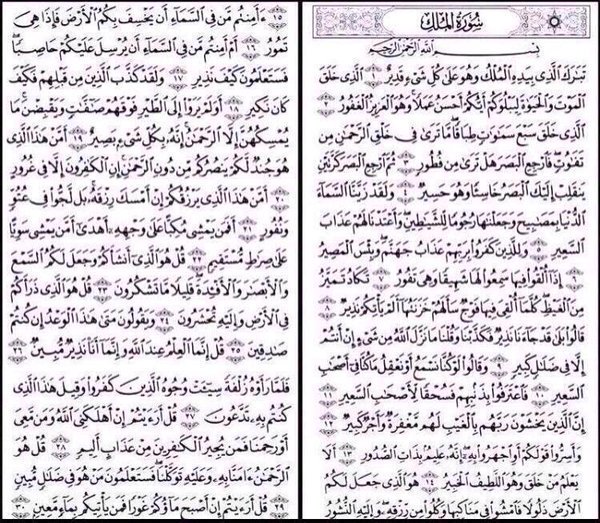 سُورَةُ الْمُلْكِ
بِسْمِ اللَّهِ الرَّحْمَٰنِ الرَّحِيمِ
تَبَارَكَ الَّذِي بِيَدِهِ الْمُلْكُ وَهُوَ عَلَىٰ كُلِّ شَيْءٍ قَدِيرٌ ١ الَّذِي خَلَقَ
الْمَوْتَ وَالْحَيَاةَ لِيَبْلُوَكُمْ أَيُّكُمْ أَحْسَنُ عَمَلًا وَهُوَ الْعَزِيزُ الْغَفُورُ ٢
الَّذِي خَلَقَ سَبْعَ سَمَاوَاتٍ طِبَاقًا مَّا تَرَىٰ فِي خَلْقِ الرَّحْمَٰنِ مِن
تَفَاوُتٍ فَارْجِعِ الْبَصَرَ هَلْ تَرَىٰ مِن فُطُورٍ ٣ ثُمَّ ارْجِعِ الْبَصَرَ كَرَّتَيْنِ
يَنقَلِبْ إِلَيْكَ الْبَصَرُ خَاسِئًا وَهُوَ حَسِيرٌ ٤ وَلَقَدْ زَيَّنَّا السَّمَاءَ
الدُّنْيَا بِمَصَابِيحَ وَجَعَلْنَاهَا رُجُومًا لِّلشَّيَاطِينِ وَأَعْتَدْنَا لَهُمْ عَذَابَ
السَّعِيرِ ٥ وَلِلَّذِينَ كَفَرُوا بِرَبِّهِمْ عَذَابُ جَهَنَّمَ وَبِئْسَ الْمَصِيرُ
٦ إِذَا أُلْقُوا فِيهَا سَمِعُوا لَهَا شَهِيقًا وَهِيَ تَفُورُ ٧ تَكَادُ تَمَيَّزُ
مِنَ الْغَيْظِ كُلَّمَا أُلْقِيَ فِيهَا فَوْجٌ سَأَلَهُمْ خَزَنَتُهَا أَلَمْ يَأْتِكُمْ نَذِيرٌ ٨
قَالُوا بَلَىٰ قَدْ جَاءَنَا نَذِيرٌ فَكَذَّبْنَا وَقُلْنَا مَا نَزَّلَ اللَّهُ مِن شَيْءٍ إِنْ أَنتُمْ
إِلَّا فِي ضَلَالٍ كَبِيرٍ ٩ وَقَالُوا لَوْ كُنَّا نَسْمَعُ أَوْ نَعْقِلُ مَا كُنَّا فِي أَصْحَابِ
السَّعِيرِ ١٠ فَاعْتَرَفُوا بِذَنبِهِمْ فَسُحْقًا لِّأَصْحَابِ السَّعِيرِ ١١
إِنَّ الَّذِينَ يَخْشَوْنَ رَبَّهُم بِالْغَيْبِ لَهُم مَّغْفِرَةٌ وَأَجْرٌ كَبِيرٌ ١٢
وَأَسِرُّوا قَوْلَكُمْ أَوِ اجْهَرُوا بِهِ إِنَّهُ عَلِيمٌ بِذَاتِ الصُّدُورِ ١٣ أَلَا
يَعْلَمُ مَنْ خَلَقَ وَهُوَ اللَّطِيفُ الْخَبِيرُ ١٤ هُوَ الَّذِي جَعَلَ لَكُمُ
الْأَرْضَ ذَلُولًا فَامْشُوا فِي مَنَاكِبِهَا وَكُلُوا مِن رِّزْقِهِ وَإِلَيْهِ النُّشُورُ
١٥ ءَأَمِنتُم مَّن فِي السَّمَاءِ أَن يَخْسِفَ بِكُمُ الْأَرْضَ فَإِذَا هِيَ
تَمُورُ ١٦ أَمْ أَمِنتُم مَّن فِي السَّمَاءِ أَن يُرْسِلَ عَلَيْكُمْ حَاصِبًا
فَسَتَعْلَمُونَ كَيْفَ نَذِيرِ ١٧ وَلَقَدْ كَذَّبَ الَّذِينَ مِن قَبْلِهِمْ فَكَيْفَ
كَانَ نَكِيرِ ١٨ أَوَلَمْ يَرَوْا إِلَى الطَّيْرِ فَوْقَهُمْ صَافَّاتٍ وَيَقْبِضْنَ مَا
يُمْسِكُهُنَّ إِلَّا الرَّحْمَٰنُ إِنَّهُ بِكُلِّ شَيْءٍ بَصِيرٌ ١٩ أَمَّنْ هَٰذَا الَّذِي
هُوَ جُندٌ لَّكُمْ يَنصُرُكُم مِّن دُونِ الرَّحْمَٰنِ إِنِ الْكَافِرُونَ إِلَّا فِي غُرُورٍ
٢٠ أَمَّنْ هَٰذَا الَّذِي يَرْزُقُكُمْ إِنْ أَمْسَكَ رِزْقَهُ بَل لَّجُّوا فِي عُتُوٍّ
وَنُفُورٍ ٢١ أَفَمَن يَمْشِي مُكِبًّا عَلَىٰ وَجْهِهِ أَهْدَىٰ أَمَّن يَمْشِي سَوِيًّا
عَلَىٰ صِرَاطٍ مُّسْتَقِيمٍ ٢٢ قُلْ هُوَ الَّذِي أَنشَأَكُمْ وَجَعَلَ لَكُمُ السَّمْعَ
وَالْأَبْصَارَ وَالْأَفْئِدَةَ قَلِيلًا مَّا تَشْكُرُونَ ٢٣ قُلْ هُوَ الَّذِي ذَرَأَكُمْ
فِي الْأَرْضِ وَإِلَيْهِ تُحْشَرُونَ ٢٤ وَيَقُولُونَ مَتَىٰ هَٰذَا الْوَعْدُ إِن كُنتُمْ
صَادِقِينَ ٢٥ قُلْ إِنَّمَا الْعِلْمُ عِندَ اللَّهِ وَإِنَّمَا أَنَا نَذِيرٌ مُّبِينٌ ٢٦
فَلَمَّا رَأَوْهُ زُلْفَةً سِيئَتْ وُجُوهُ الَّذِينَ كَفَرُوا وَقِيلَ هَٰذَا الَّذِي
كُنتُم بِهِ تَدَّعُونَ ٢٧ قُلْ أَرَأَيْتُمْ إِنْ أَهْلَكَنِيَ اللَّهُ وَمَن مَّعِيَ
أَوْ رَحِمَنَا فَمَن يُجِيرُ الْكَافِرِينَ مِنْ عَذَابٍ أَلِيمٍ ٢٨ قُلْ هُوَ
الرَّحْمَٰنُ ءَامَنَّا بِهِ وَعَلَيْهِ تَوَكَّلْنَا فَسَتَعْلَمُونَ مَنْ هُوَ فِي ضَلَالٍ مُّبِينٍ
٢٩ قُلْ أَرَأَيْتُمْ إِنْ أَصْبَحَ مَاؤُكُمْ غَوْرًا فَمَن يَأْتِيكُم بِمَاءٍ مَّعِينٍ ٣٠